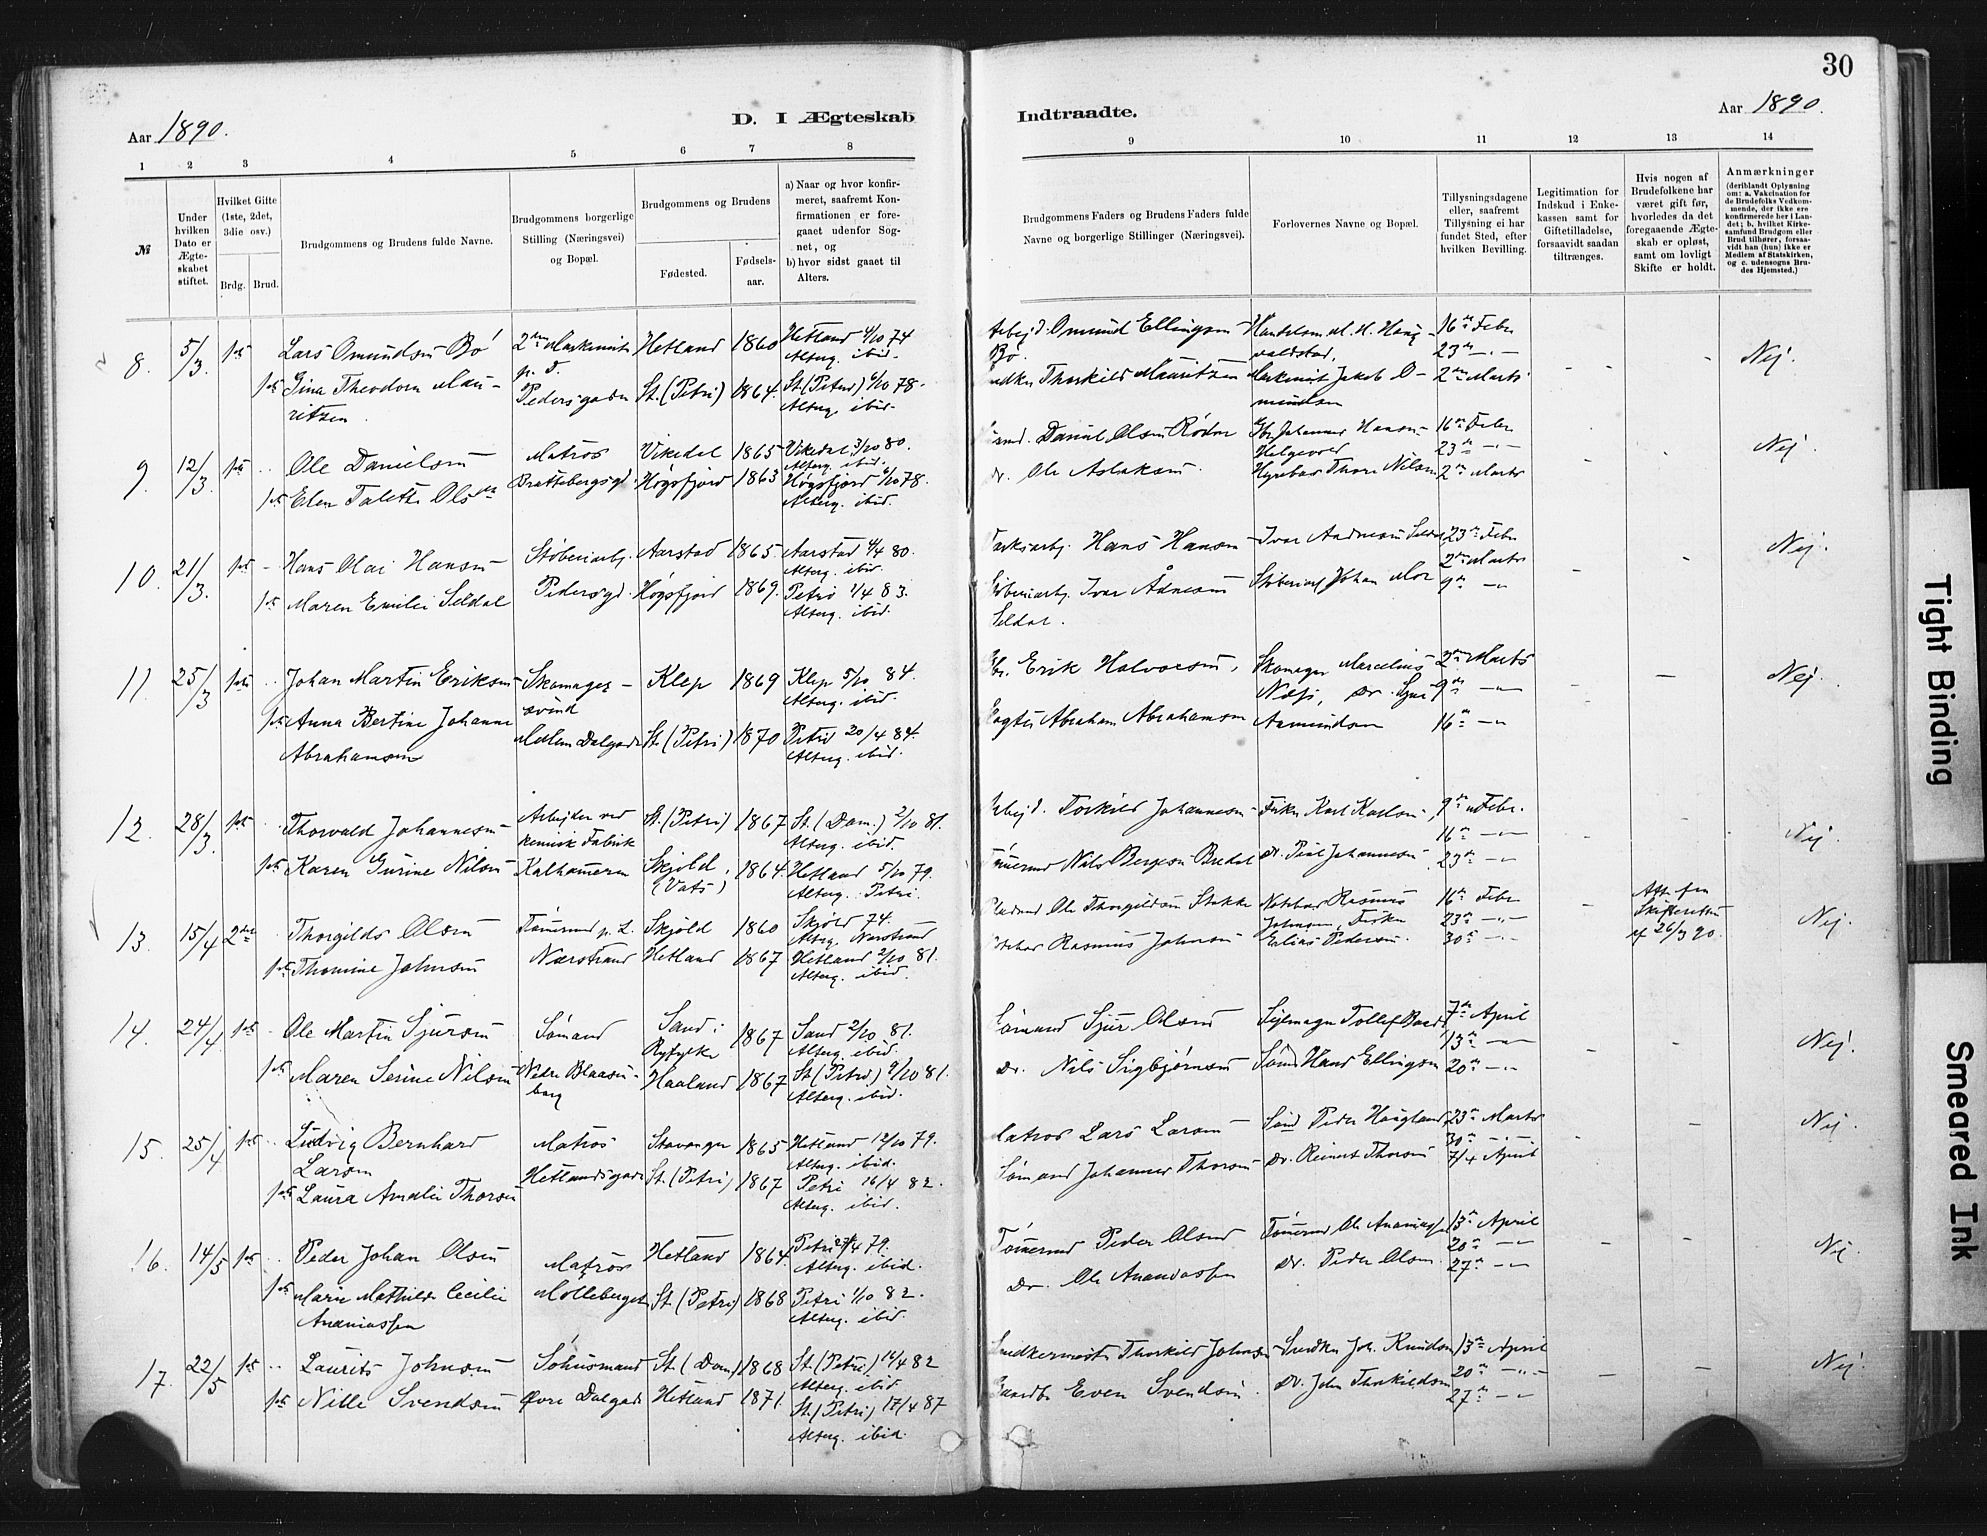 30
Aar 1890.
D. I Ægteskab
Indtraadte.
Aar 1890.
1 2 3 4 5 6 7 8
9 10 11 12 13 14
№
Under hvilken Dato er Ægteskabet stiftet.
Hvilket Gifte (1ste, 2det, 3die osv.)
Brdg. Brud.
Brudgommens og Brudens fulde Navne.
Brudgommens borgerlige Stilling (Næringsvei) og Bopæl.
Brudgommens og Brudens
Fødested.
Fødselsaar.
a) Naar og hvor konfirmeret, saafremt Konfirmationen er foregaaet udenfor Sognet, og
b) hvor sidst gaaet til Alters.
Brudgommens Faders og Brudens Faders fulde Navne og borgerlige Stillinger (Næringsvei).
Forlovernes Navne og Bopæl.
Tillysningsdagene eller, saafremt Tillysning ei har fundet Sted, efter hvilken Bevilling.
Legitimation for Indskud i Enkekassen samt for Giftetilladelse, forsaavidt saadan tiltrænges.
Hvis nogen af Brudefolkene har været gift før, hvorledes da det foregaaende Ægteskab er opløst, samt om lovligt Skifte er holdt.
Anmærkninger
(deriblandt Oplysning om: a. Vakcination for de Brudefolks Vedkommende, der ikke ere konfirmerede her i Landet; b. hvilket Kirkesamfund Brudgom eller Brud tilhører, forsaavidt han (hun) ikke er Medlem af Statskirken, og c. udensogns Brudes Hjemsted.)
8. 5/3. 1ste Lars Omundsen Bø 2den Maskinist Hetland 1860 Hetland 4/10 74
Alterg. ibid.
1ste Gina Theodora Mauritzen Pedersgaden St. (Petri) 1864. St. (Petri) 6/10 78.
Alterg. ibid.
Arbejd. Omund Ellingsen Bø. Handelsm. M. H. Haugvaldstad, 16de Febr
23de
Thorkild Mauritzen Maskinist Jakob Omundsen 2den Marts
Nej.
9. 12/3. 1ste Ole Danielsen Matros Vikedal 1865 Vikedal 3/10 80.
Alterg. ibid.
1ste Elen Talette Olsen Brattebergsgd. Høgsfjord 1863 Høgsfjord 6/10 78.
Alterg. ibid.
Daniel Olsen Johannes Hansen Helgevold 16de Febr
23de
Dr. Ole Aslaksen. Thore Nilsen 2den Marts
Nej.
10. 21/3. 1ste Hans Olai Hansen Støberiarbj. Aarstad 1865. Aarstad 4/4 80.
Alterg. ibid.
1ste Maren Emilie Seldal Pedersgd. Høgsfjord 1869. Petri 1/4 83.
Alterg. ibid.
Hans Hansen Ivar Andreasen Seldal 23de Febr
2den Marts
Ivar Ådnesen Seldal. Støberiarbj. Johan 9de
Nej.
11. 25/3 1ste Johan Martin Eriksen Skomagersvend Klep 1869 Klep 5/10 84.
Alterg. ibid.
1ste Anna Bertine Johanne Abrahamsen Mellem Dalgade St. (Petri) 1870 Petri 20/4 84.
Alterg. ibid.
Erik Halvorsen, Skomager Marcelius Næss, Dr. Sjur Aamundsen 2den Marts
9de
Abraham Abrahamsen 16de
Nej.
12. 28/3. 1ste Thorvald Johannesen Arbejder ved kemisk Fabrik St. (Petri) 1867 St. (Dom.) 2/10 81.
Alterg. ibid.
1ste Karen Gurine Nilsen Kalhammeren Skjold, (Vats) 1864. Hetland 5/10 79.
Alterg. Petri.
Torkild Johannesen Karl Karlsen 9de Febr.
16de
Tømermd Nils Bergesen Bredal Dr. Johannesen 23de
Nej.
13. 15/4 2det Thorgilds Olsen Tømermd p. L. Skjold 1860 Skjold 74.
Alterg. Nærstrand
1ste Thomine Johnsen Nærstrand Hetland 1867 Hetland 2/10 81.
Alterg. ibid.
Ole Thorgildsen Stokke Rasmus Johnsen, 16de Febr
23de
Rasmus Johnsen Elias Pedersen. 30de
Att. fra Skifteretten af 26/3 90.
Nej.
14. 24/4. 1ste Ole Martin Sjursen Sømand Sand i Ryfylke 1867 Sand 2/10 81.
Alterg. ibid.
1ste Maren Serine Nilsen Nedre Blaasenborg Haaland 1867 St. (Petri) 9/10 81.
Alterg. ibid.
Sømand Sjur Olsen Sejlmager Tollef 7de April
13de
Dr. Nils Sigbjørnsen Sømd Hans Ellingsen 20de
Nej.
15. 25/4 1ste Ludvig Bernhard Larsen Matros Stavanger 1865 Hetland 12/10 79.
Alterg. ibid.
1ste Laura Amalie Thorsen Hetlandsgade St. (Petri) 1867 Petri 16/4 82.
Alterg. ibid.
Matros Lars Larsen Sømd Peder Haugland 23de Marts
30de
Sømand Johannes Thorsen Dr. Reinert Thorsen 7/4 April
Nej.
16. 14/5 1ste Peder Johan Olsen Matros Hetland 1864. Petri 27/4 79.
Alterg. ibid.
1ste Marie Mathilde Cecilie Ananiassen Mølleberget St. (Petri) 1868 Petri 1/10 82.
Alterg. ibid.
Tømermd Peder Olsen Tømermd Ole Ananiassen 13de April
20de
Dr. Ole Ananiassen Dr. Peder Olsen. 27de
Nej.
17. 22/5 1ste Laurits Johnsen Sohusmand St. (Dom) 1868 St. (Petri) 16/4 82
Alterg. ibid
1ste Nille Svendsen Øvre Dalgade Hetland 1871. St. (Petri) 17/4 87
Alterg. ibid.
Snedkermester Thorkild Johnsen Snedker Joh. Knudsen 13de April
20de
Even Svendsen Dr. John Thorkildsen 27de
Nej.
Tight Binding
Smeared Ink